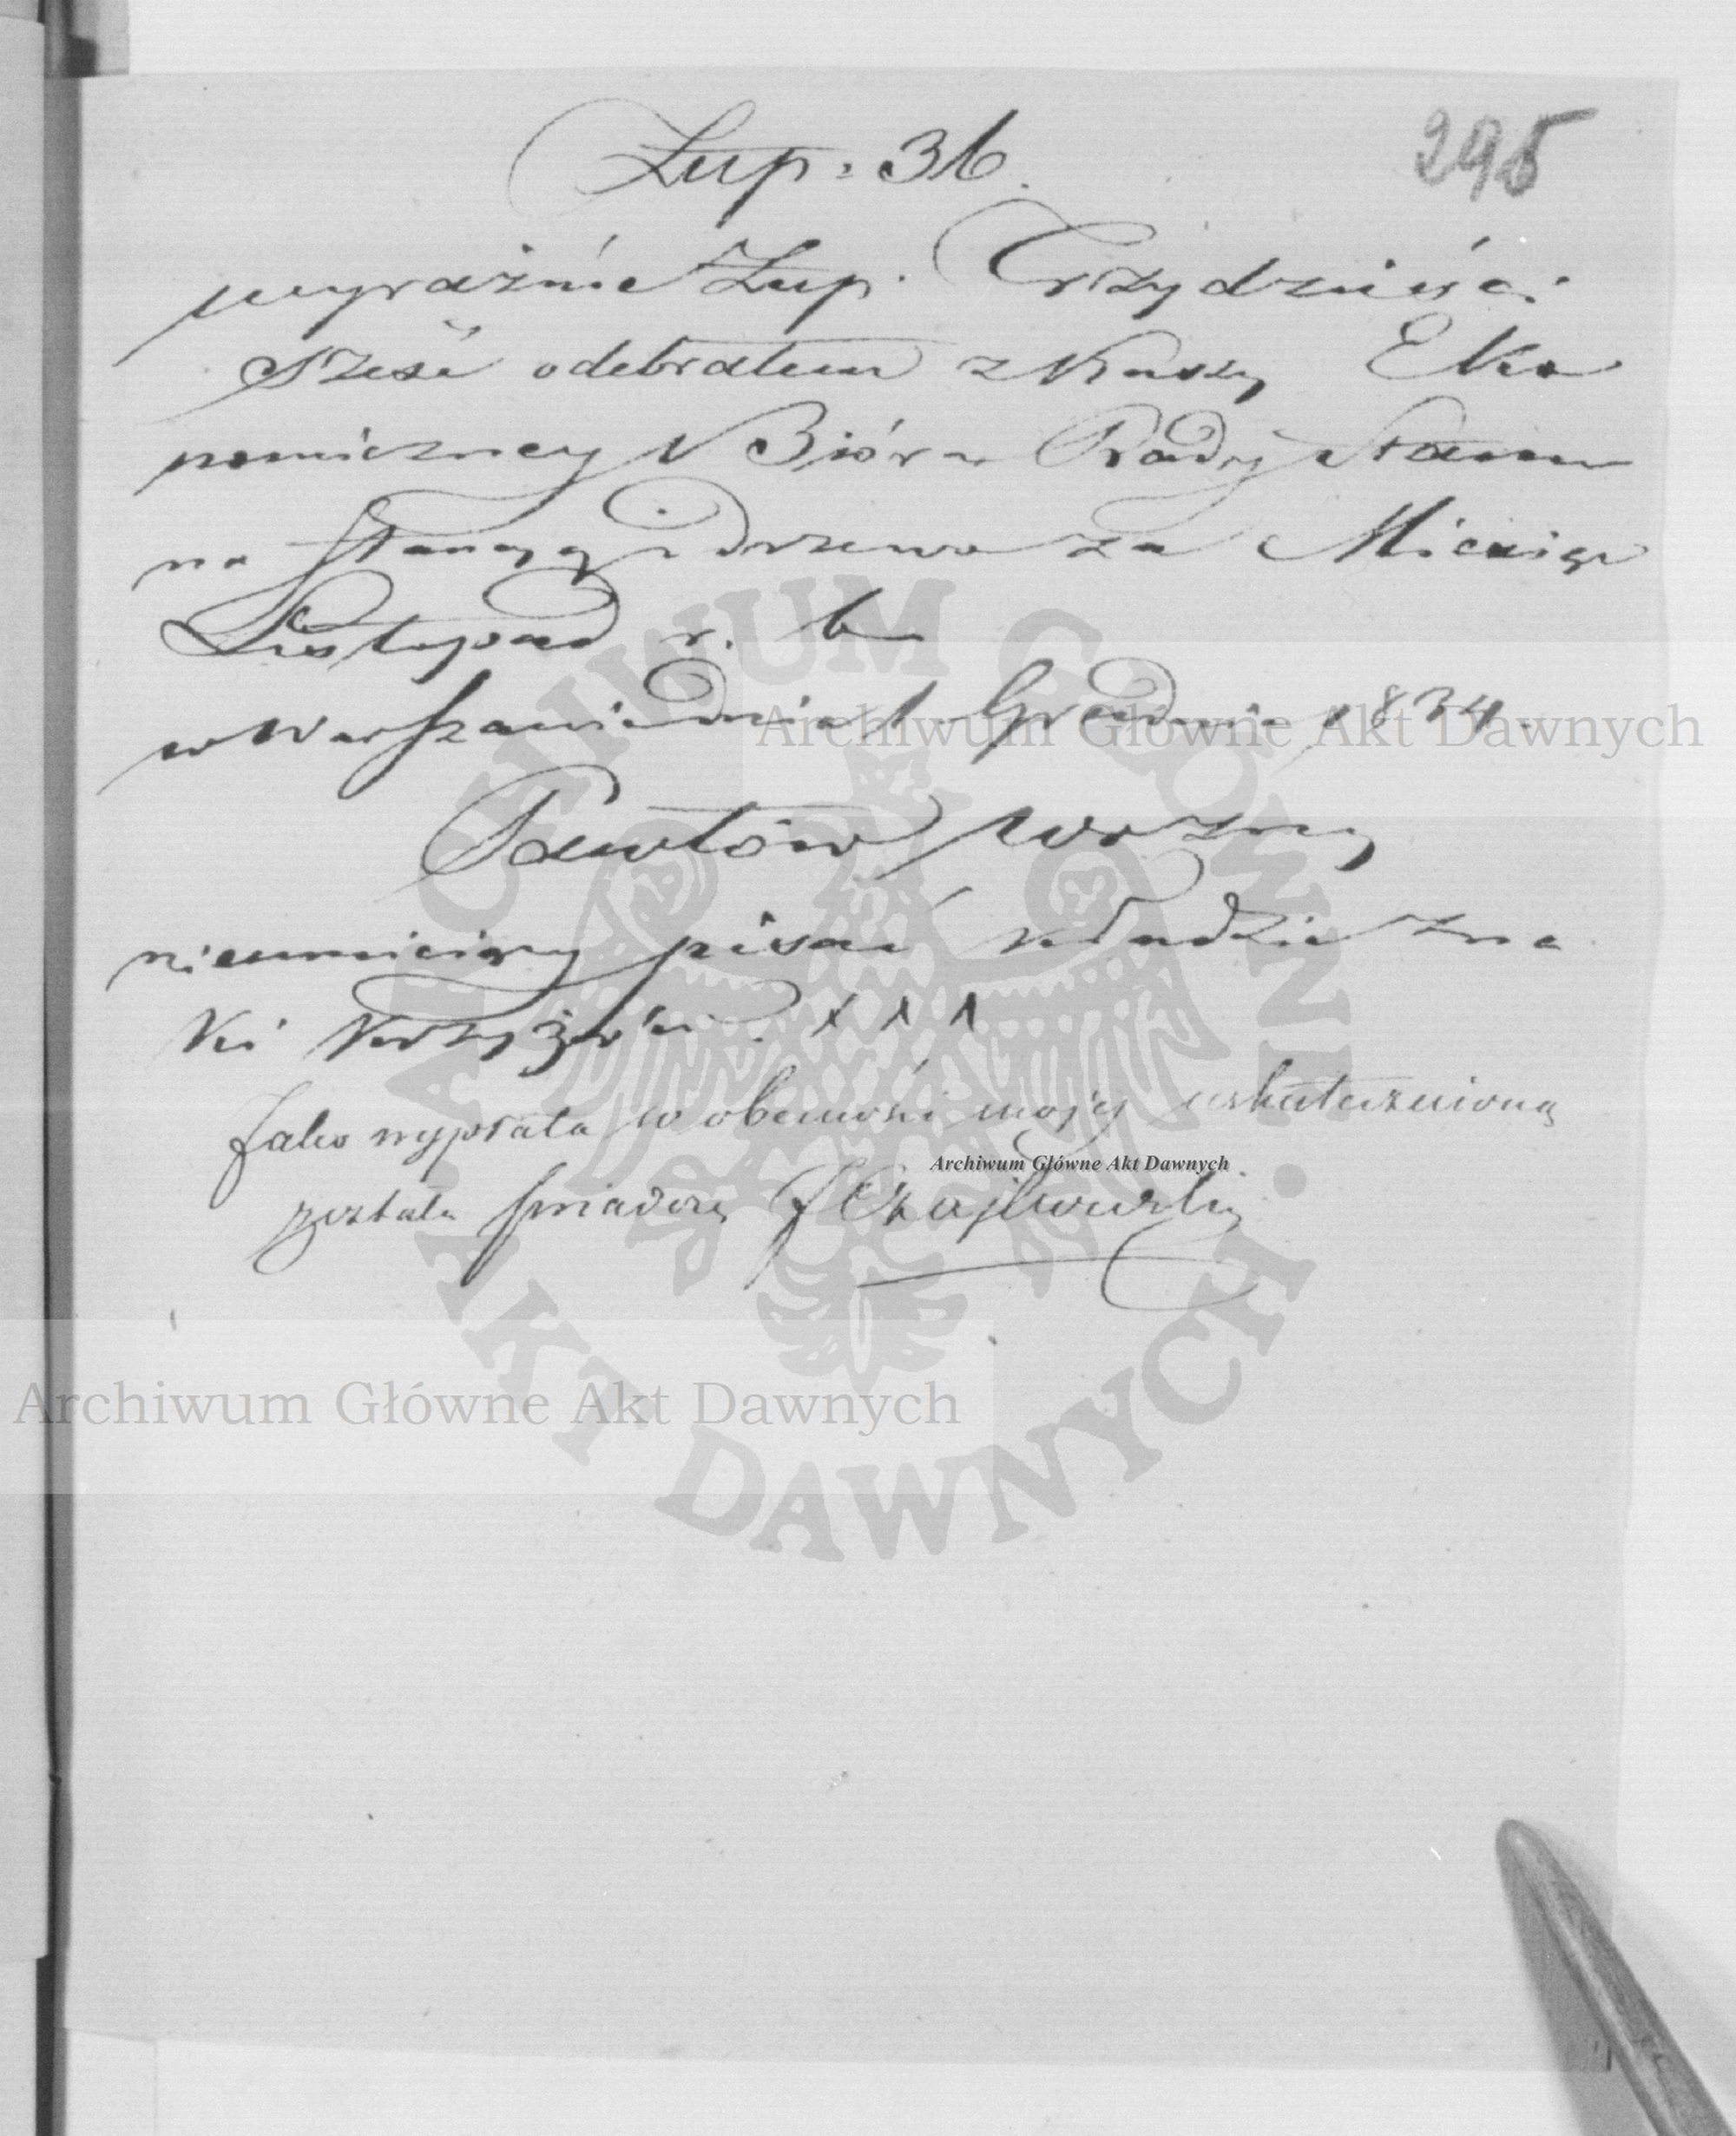 Złłp: 36.
295
wyraźnie Złłp. Trzydzieści
sześć odebrałem z Kassy Eko
nomiczney Bióra Rady Stanu
na stancyą i drzewo za Miesiąc
Listopad r. b.
w Warszawie dnia 1 Grudnia 1834.
Pawłów Woźny
nieumieiący pisać kładzie zna
ki krzyżowe. X X X
Jako wypłata w obecności mojéj uskutecznioną
została świadczę
Archiwum Główne Akt Dawnych
Archiwum Główne Akt Dawnych
Archiwum Główne Akt Dawnych
ARCHIWUM GŁÓWNE · AKT DAWNYCH ·